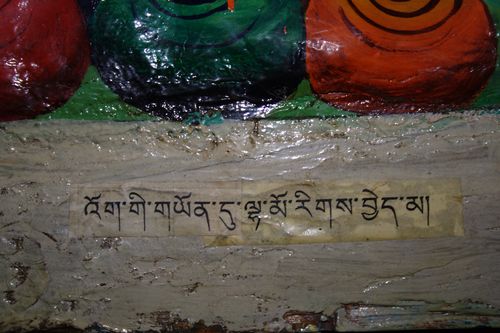 འོག་གི་གཡོན་དུ་ལྷ་མོ་རིགས་བྱེད་མ།